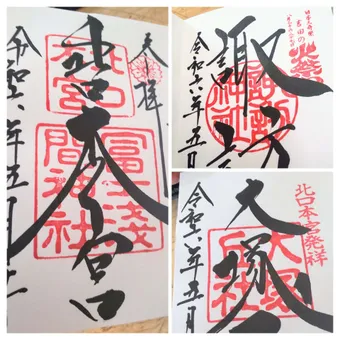 奉拝
北口本宮
冨士浅間神社
令和六年五月十
日本三奇祭
吉田の火祭
諏訪
諏訪神社
令和六年五月
北口本宮発祥
大塚
大塚丘社
令和六年五月